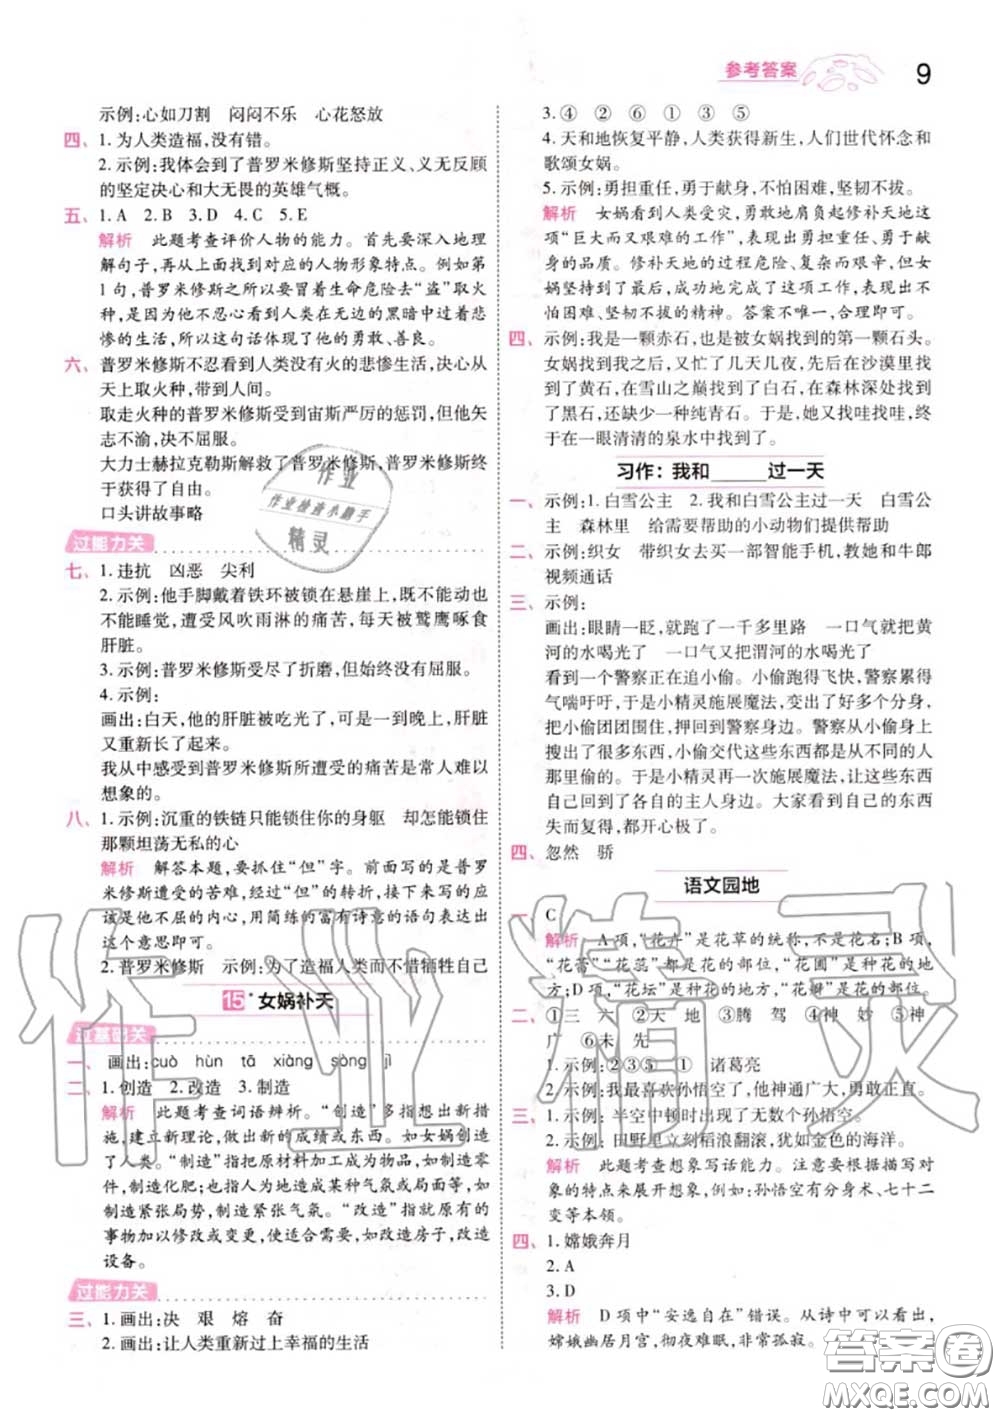 参考答案
9
示例:心如刀割 闷闷不乐 心花怒放
四、1.为人类造福,没有错。
2.示例:我体会到了普罗米修斯坚持正义、义无反顾
的坚定决心和大无畏的英雄气概。
五、1.A 2.B 3.D 4.C 5.E
解析 此题考查评价人物的能力。首先要深入地理
解句子,再从上面找到对应的人物形象特点。例如第
1句,普罗米修斯之所以要冒着生命危险去“盗”取火
种,是因为他不忍心看到人类在无边的黑暗中过着悲
惨的生活,所以这句话体现了他的勇敢、善良。
六、普罗米修斯不忍看到人类没有火的悲惨生活,决心从
天上取火种,带到人间。
取走火种的普罗米修斯受到宙斯严厉的惩罚,但他矢
志不渝,决不屈服。
大力士赫拉克勒斯解救了普罗米修斯,普罗米修斯终
于获得了自由。
口头讲故事略
过能力关
七、1.违抗 凶恶 尖利
2.示例:他手脚戴着铁环被锁在悬崖上,既不能动也
不能睡觉,遭受风吹雨淋的痛苦,每天被鹫鹰啄食
肝脏。
3.示例:普罗米修斯受尽了折磨,但始终没有屈服。
4.示例:
画出:白天,他的肝脏被吃光了,可是一到晚上,肝脏
又重新长了起来。
我从中感受到普罗米修斯所遭受的痛苦是常人难以
想象的。
八、1.示例:沉重的铁链只能锁住你的身躯 却怎能锁住
那颗坦荡无私的心
解析 解答本题,要抓住“但”字。前面写的是普罗
米修斯遭受的苦难,经过“但”的转折,接下来写的应
该是他不屈的内心,用简练的富有诗意的语句表达出
这个意思即可。
2.普罗米修斯 示例:为了造福人类而不惜牺牲自己
15* 女娲补天
过基础关
一、画出:cuò hùn tā xiàng sòng jì
二、1.创造 2.改造 3.制造
解析 此题考查词语辨析。“创造”多指想出新措
施,建立新理论,做出新的成绩或东西。如女娲创造
了人类。“制造”指把原材料加工成为物品,如制造零
件,制造化肥;也指造成某种气氛或局面等,如
制造紧张局势,制造紧张气氛。“改造”指就原有的
事物加以修改或变更,使适合需要,如改造房子,改造
设备。
过能力关
三、1.画出:决 艰 熔 奋
2.画出:让人类重新过上幸福的生活
3.④ ② ⑥ ① ③ ⑤
4.天和地恢复平静,人类获得新生,人们世代怀念和
歌颂女娲。
5.示例:勇担重任,勇于献身,不怕困难,坚韧不拔。
解析 女娲看到人类受灾,勇敢地肩负起修补天地这
项“巨大而又艰难的工作”,表现出勇担重任、勇于献
身的品质。修补天地的过程危险、复杂而艰辛,但女
娲坚持到了最后,成功地完成了这项工作,表现出不
怕困难、坚韧不拔的精神。答案不唯一,合理即可。
四、示例:我是一颗赤石,也是被女娲找到的第一颗石头。
女娲找到我之后,又忙了几天几夜,先后在沙漠里找
到了黄石,在雪山之巅找到了白石,在森林深处找到
了黑石,还缺少一种纯青石。于是,她又找哇找哇,终
于在一眼清清的泉水中找到了。
习作:我和______过一天
一、示例:1.白雪公主 2.我和白雪公主过一天 白雪公
主 森林里 给需要帮助的小动物们提供帮助
二、示例:织女 带织女去买一部智能手机,教她和牛郎
视频通话
三、示例:
画出:眼睛一眨,就跑了一千多里路 一口气就把黄
河的水喝光了 一口气又把渭河的水喝光了
看到一个警察正在追小偷。小偷跑得飞快,警察累得
气喘吁吁,于是小精灵施展魔法,变出了好多个分身,
把小偷团团围住,押回到警察身边。警察从小偷身上
搜出了很多东西,小偷交代这些东西都是从不同的人
那里偷的。于是小精灵再一次施展魔法,让这些东西
自己回到各自的主人身边。大家看到自己的东西
失而复得,都开心极了。
四、忽然 骄
语文园地
一、C
解析 A项,“花卉”是花草的统称,不是花名;B项,
“花蕾”“花蕊”都是花的部位,“花圃”是种花的地
方;D项,“花坛”是种花的地方,“花瓣”是花的部位。
二、①三 六 ②天 地 ③腾 驾 ④神 妙 ⑤神
广 ⑥未 先
1.示例:②③⑤ ① 诸葛亮
2.示例:我最喜欢孙悟空了,他神通广大,勇敢正直。
三、1.示例:半空中顿时出现了无数个孙悟空。
2.示例:田野里立刻稻浪翻滚,犹如金色的海洋。
解析 此题考查想象写话能力。要根据描写对
象的特点来展开想象,例如:孙悟空有分身术、七十二
变等本领。
四、1.嫦娥奔月
2.A
3.D
解析 D项中“安逸自在”错误。从诗中可以看出,
嫦娥幽居月宫,彻夜难眠,非常孤寂。
作业
作业快速小助手
精灵
作业精灵
答案圈
MXQE.COM